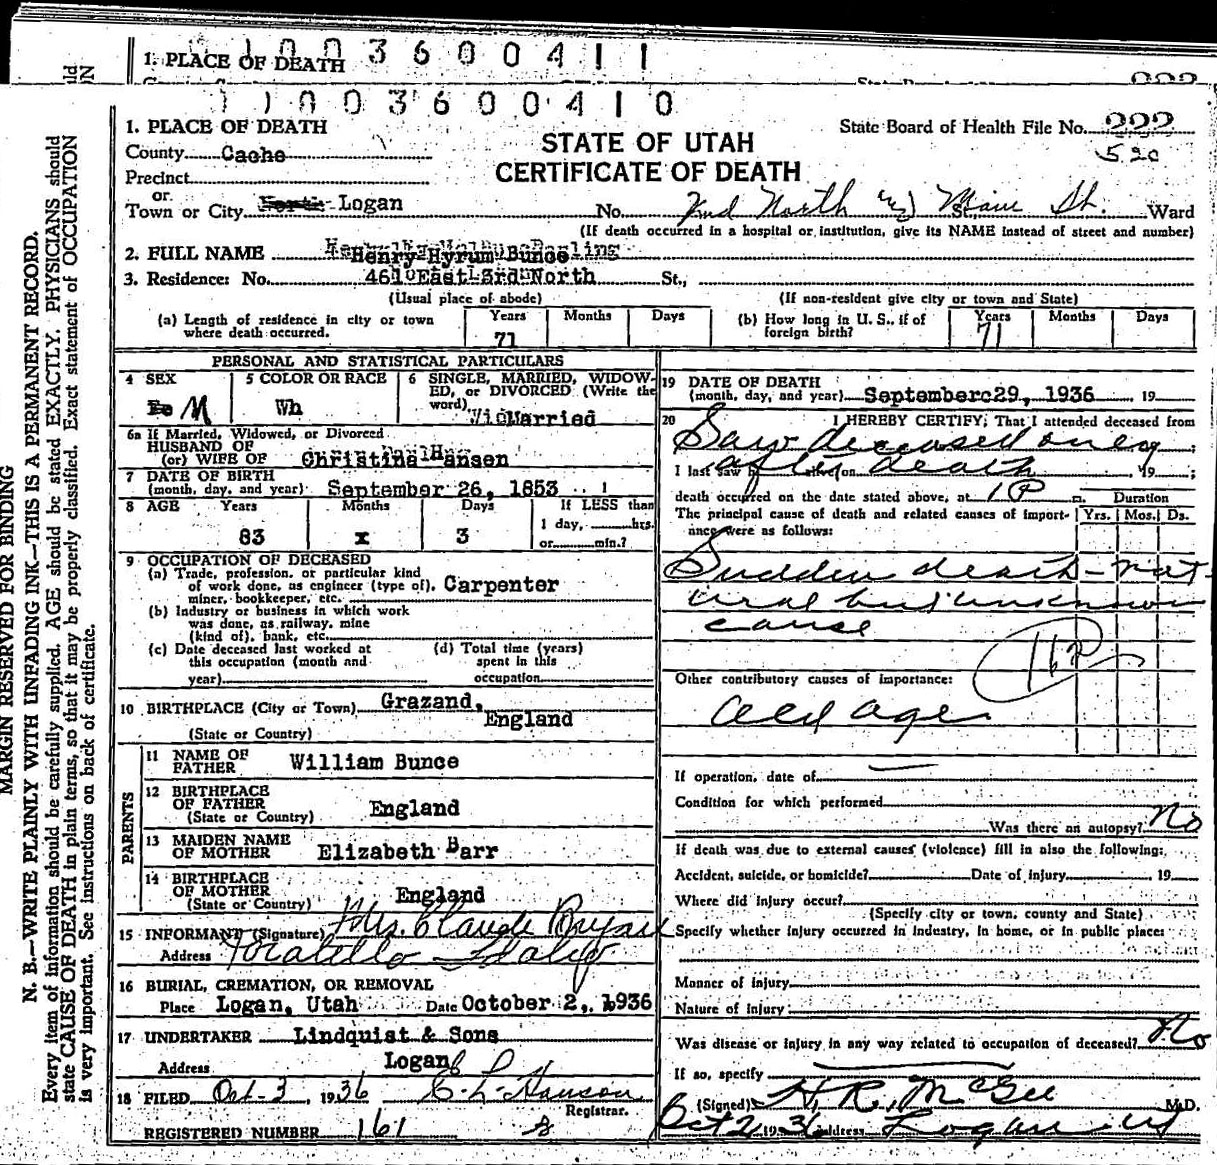 1. PLACE OF DEATH
1003600411
222
1003600410
1. PLACE OF DEATH
STATE OF UTAH
CERTIFICATE OF DEATH
State Board of Health File No. 222
520
County Cache
Precinct
or
Town or City Logan
No. 2nd North & Main St. St., Ward
(If death occurred in a hospital or institution, give its NAME instead of street and number)
2. FULL NAME Henry Hyrum Bunce
3. Residence: No. 461 East 3rd North St.,
(Usual place of abode)
(If non-resident give city or town and State)
(a) Length of residence in city or town where death occurred. Years 71 Months Days
(b) How long in U. S., if of foreign birth? Years 71 Months Days
PERSONAL AND STATISTICAL PARTICULARS
4 SEX M
5 COLOR OR RACE Wh
6 SINGLE, MARRIED, WIDOWED, or DIVORCED (Write the word) Married
6a If Married, Widowed, or Divorced
HUSBAND OF
(or) WIFE OF Christina Hansen
7 DATE OF BIRTH
(month, day, and year) September 26, 1853
8 AGE Years 83 Months x Days 3
If LESS than
1 day, hrs.
or min.?
9 OCCUPATION OF DECEASED
(a) Trade, profession, or particular kind
of work done, as engineer (type of), Carpenter
miner, bookkeeper, etc.
(b) Industry or business in which work
was done, as railway, mine
(kind of), bank, etc.
(c) Date deceased last worked at
this occupation (month and
year)
(d) Total time (years)
spent in this
occupation
10 BIRTHPLACE (City or Town) Grazand,
England
(State or Country)
PARENTS
11 NAME OF
FATHER William Bunce
12 BIRTHPLACE
OF FATHER England
(State or Country)
13 MAIDEN NAME
OF MOTHER Elizabeth Barr
14 BIRTHPLACE
OF MOTHER England
(State or Country)
15 INFORMANT (Signature) Mrs. Claude Bryan
Address Pocatello Idaho
16 BURIAL, CREMATION, OR REMOVAL
Place Logan, Utah Date October 2, 1936
17 UNDERTAKER Lindquist & Sons
Address Logan
18 FILED Oct-3 1936 Hanson
Registrar.
REGISTERED NUMBER 161 8
19 DATE OF DEATH
(month, day, and year) September 29, 1936 19
20 I HEREBY CERTIFY; That I attended deceased from
Saw deceased only
after death
I last saw h alive on , 19 ;
death occurred on the date stated above, at 1 P m.
Duration
The principal cause of death and related causes of importance were as follows:
Yrs. Mos. Ds.
Sudden death - nat-
ural but unknown
cause
Other contributory causes of importance:
Old age
If operation, date of
Condition for which performed
Was there an autopsy? No
If death was due to external causes (violence) fill in also the following:
Accident, suicide, or homicide? Date of injury 19
Where did injury occur?
(Specify city or town, county and State)
Specify whether injury occurred in industry, in home, or in public place:
Manner of injury
Nature of injury
Was disease or injury in any way related to occupation of deceased? No
If so, specify
(Signed) H. R. McGee M.D.
Oct 2 1936 Address Logan Ut
MARGIN RESERVED FOR BINDING
N. B.—WRITE PLAINLY WITH UNFADING INK—THIS IS A PERMANENT RECORD.
Every item of information should be carefully supplied. AGE should be stated EXACTLY. PHYSICIANS should
state CAUSE OF DEATH in plain terms, so that it may be properly classified. Exact statement of OCCUPATION
is very important. See instructions on back of certificate.